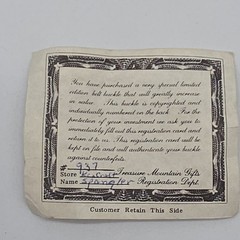 You have purchased a very special limited
edition belt buckle that will greatly increase
in value. This buckle is copyrighted and
individually numbered on the back. For the
protection of your investment we ask you to
immediately fill out this registration card and
return it to us. This registration card will be
kept on file and will authenticate your buckle
against counterfeits.
# 937
Store Treasure Mountain Gifts
Name Spangler Registration Dept.
Customer Retain This Side